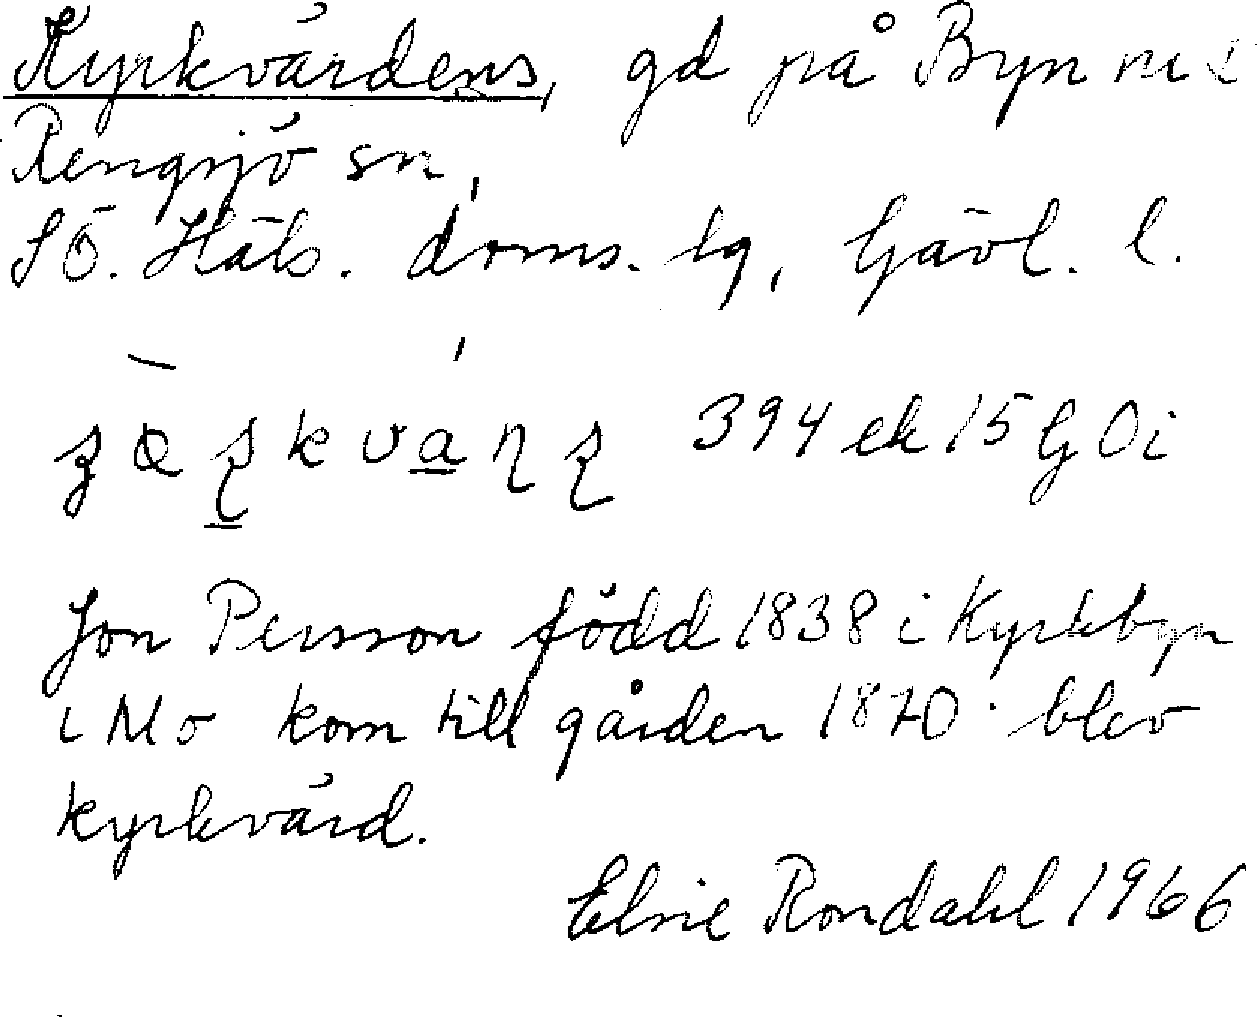 Kyrkvärdens, gd på Byn nr
Rengsjö sn,
SÖ. Häls. doms. lg, Gävl. l.
394 ek 15 G Oi
Jon Persson född 1838 i Kyrkbyn
i Mo kom till gården 1870. blev
kyrkvärd.
Elsie Rondahl 1966